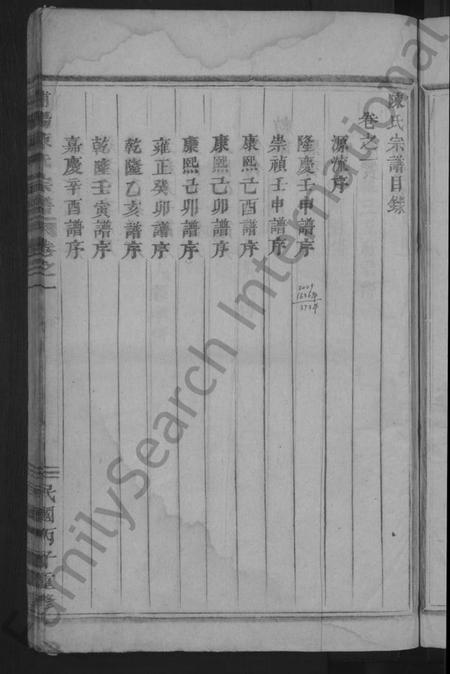 陳氏宗譜目錄
卷之一
源流序
隆慶壬申譜序
崇禎壬申譜序
康熙己酉譜序
康熙己卯譜序
康熙己卯譜序
雍正癸卯譜序
乾隆乙亥譜序
乾隆壬寅譜序
嘉慶辛酉譜序
陳氏宗譜
卷之一
民國丙子重修
2009
1636年
373年
FamilySearch International